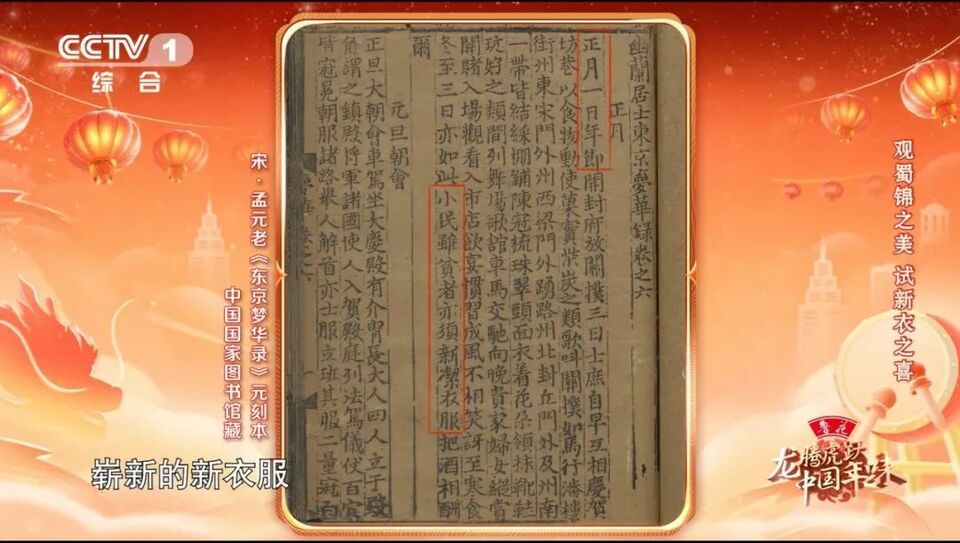 CCTV 1
综合
观蜀锦之美 试新衣之喜
幽蘭居士東京夢華錄卷之六
正月
正月一日年節開封府放關撲三日士庶自早互相慶賀
坊巷以食物動使菓實柴炭之類歌呌關撲如馬行潘樓
街州東宋門外州西梁門外踴路州北封丘門外及州南
一帶皆結綵棚鋪陳冠梳珠翠頭面衣着花朶領抹靴鞋
玩好之類間列舞場歌館車馬交馳向晚貴家婦女縱賞
關賭入場觀看入市店飲宴慣習成風不相笑訝至寒食
冬至三日亦如此小民雖貧者亦須新潔衣服把酒相酬
爾
元旦朝會
正旦大朝會車駕坐大慶殿有介冑長大人四人立于殿
角謂之鎮殿將軍諸國使人入賀殿庭列法駕儀仗百官
皆冠冕朝服諸路舉人解首亦士服立班其服二量冠白
宋·孟元老《东京梦华录》元刻本
中国国家图书馆藏
崭新的新衣服
鲁花
龙腾虎跃
中国年味